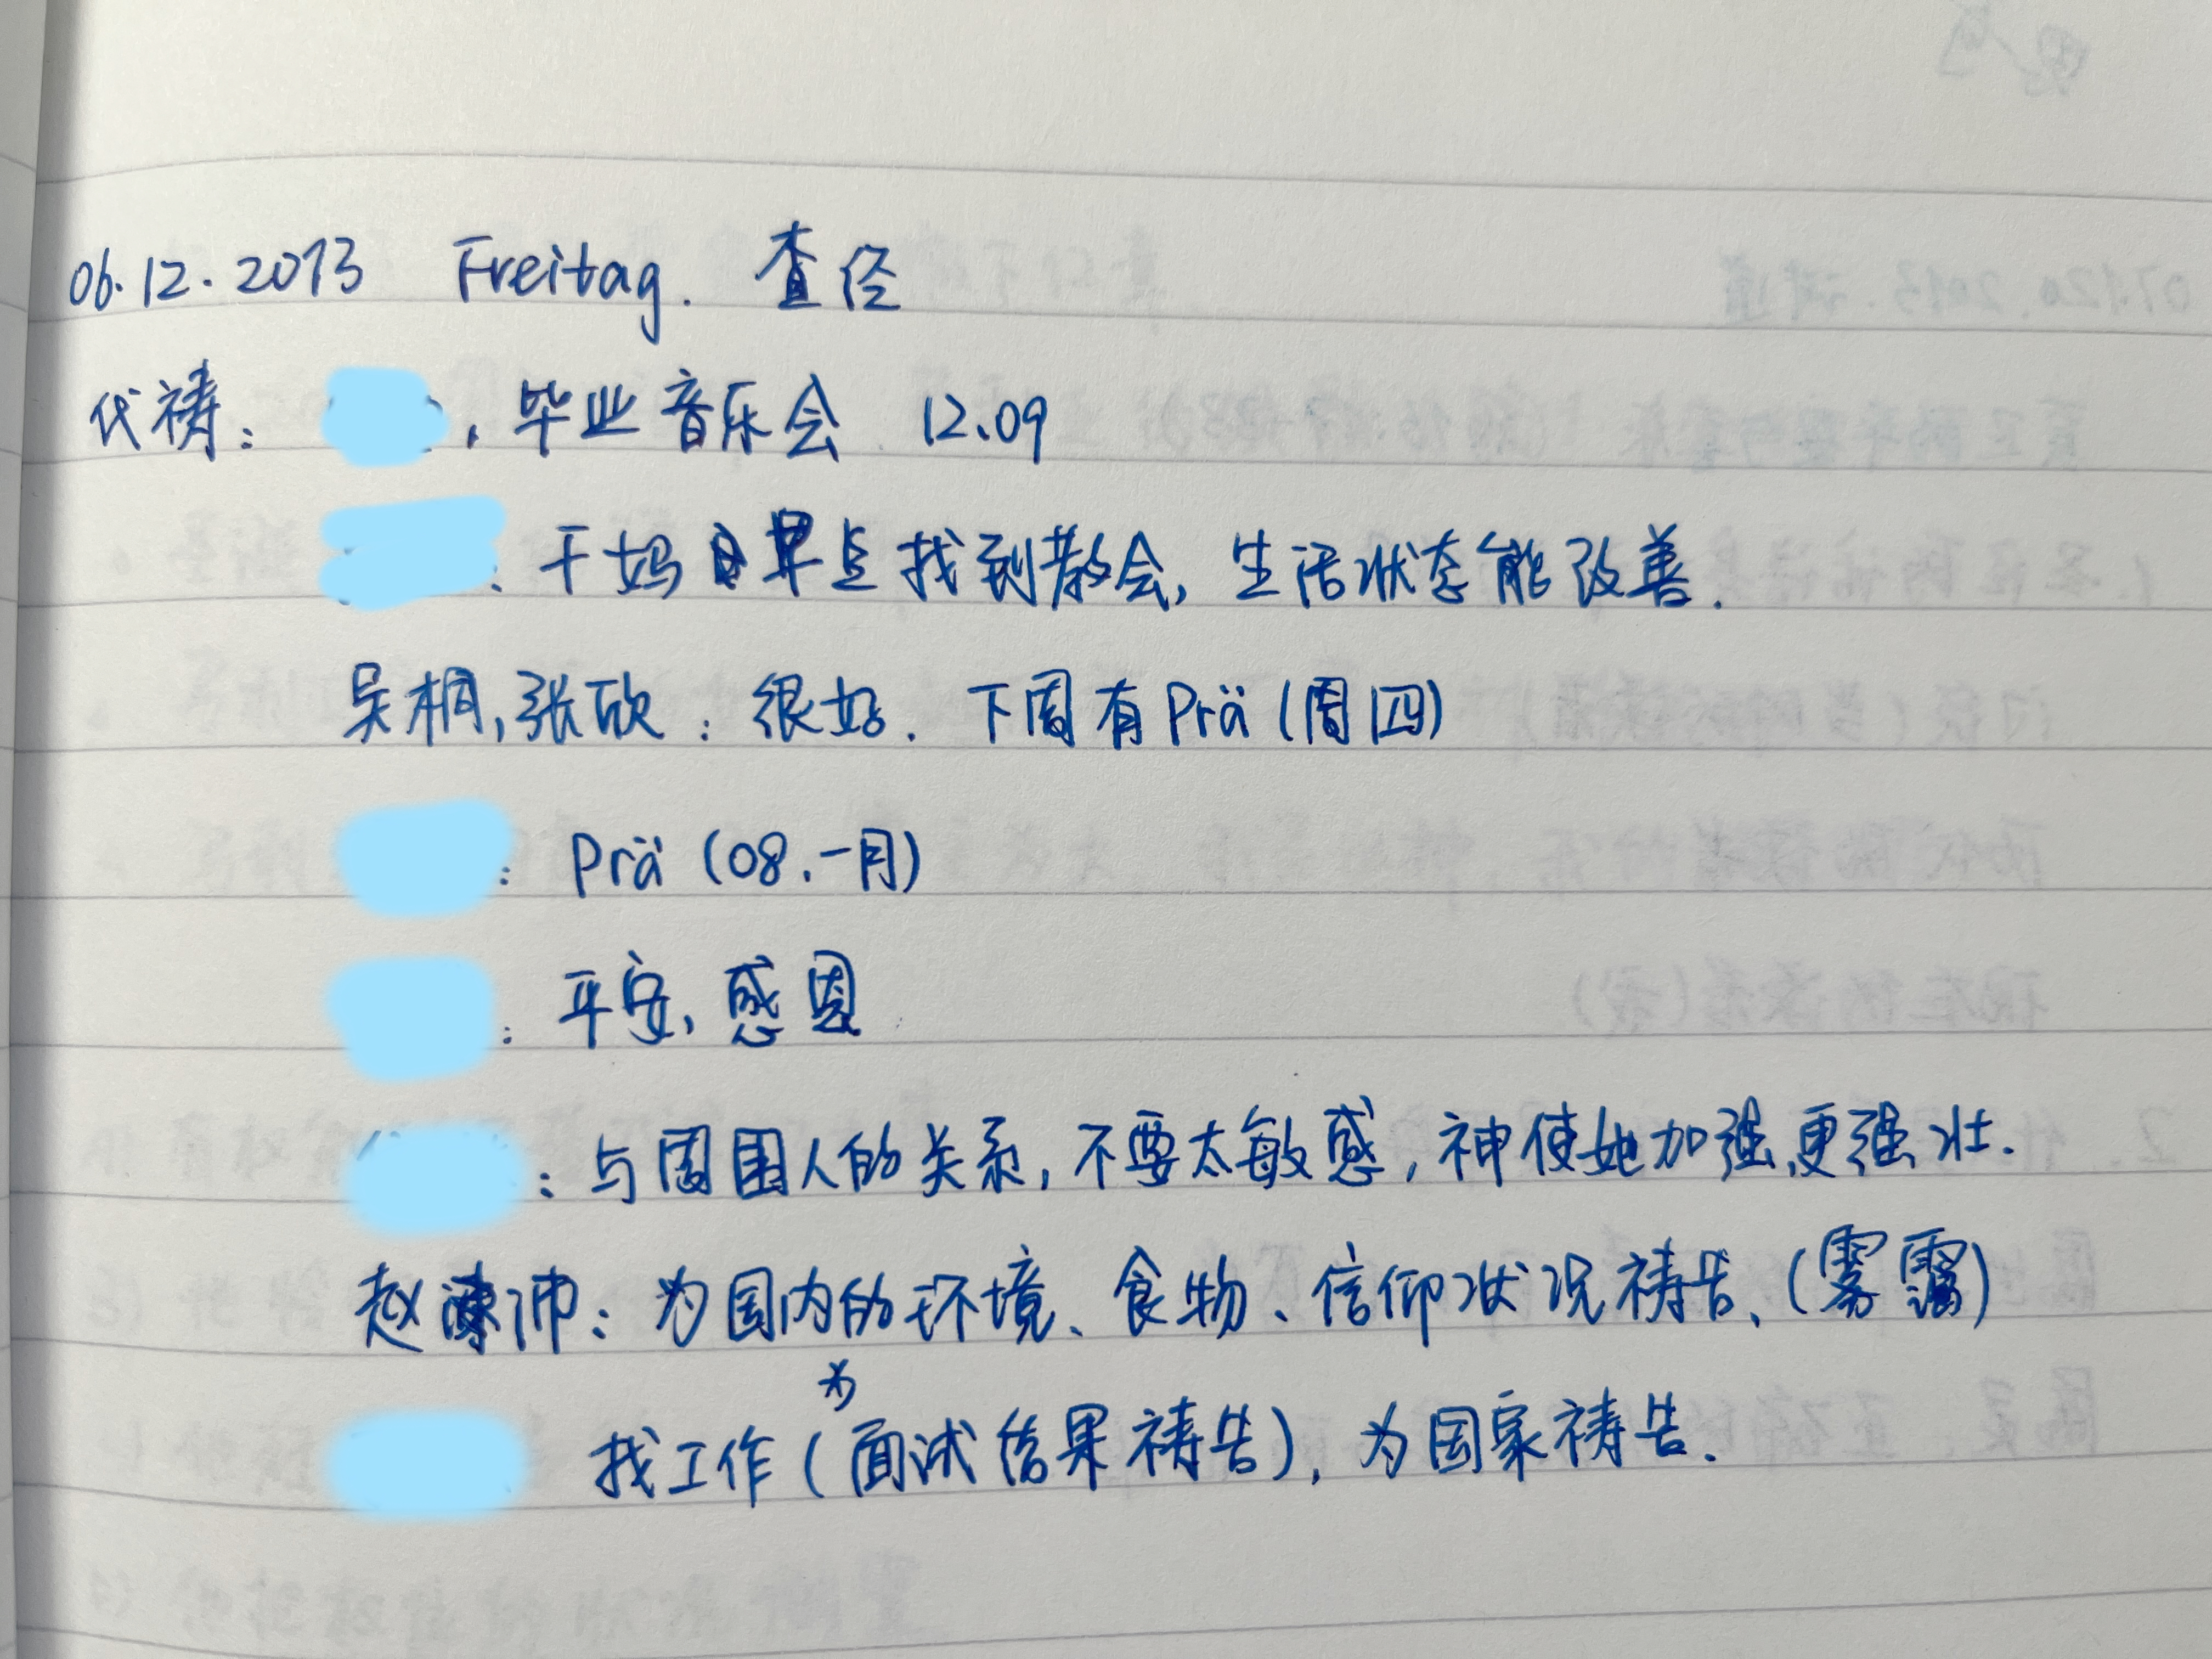 06.12.2013 Freitag. 查经
代祷: , 毕业音乐会 12.09
干妈早点找到教会, 生活状态能改善.
吴桐, 张欣: 很好. 下周有Prä (周四)
: Prä (08.一月)
: 平安, 感恩
: 与周围人的关系, 不要太敏感, 神使她加强, 更强壮.
赵 帅: 为国内的环境、食物、信仰状况祷告、(雾霾)
找工作(为面试结果祷告), 为国家祷告.